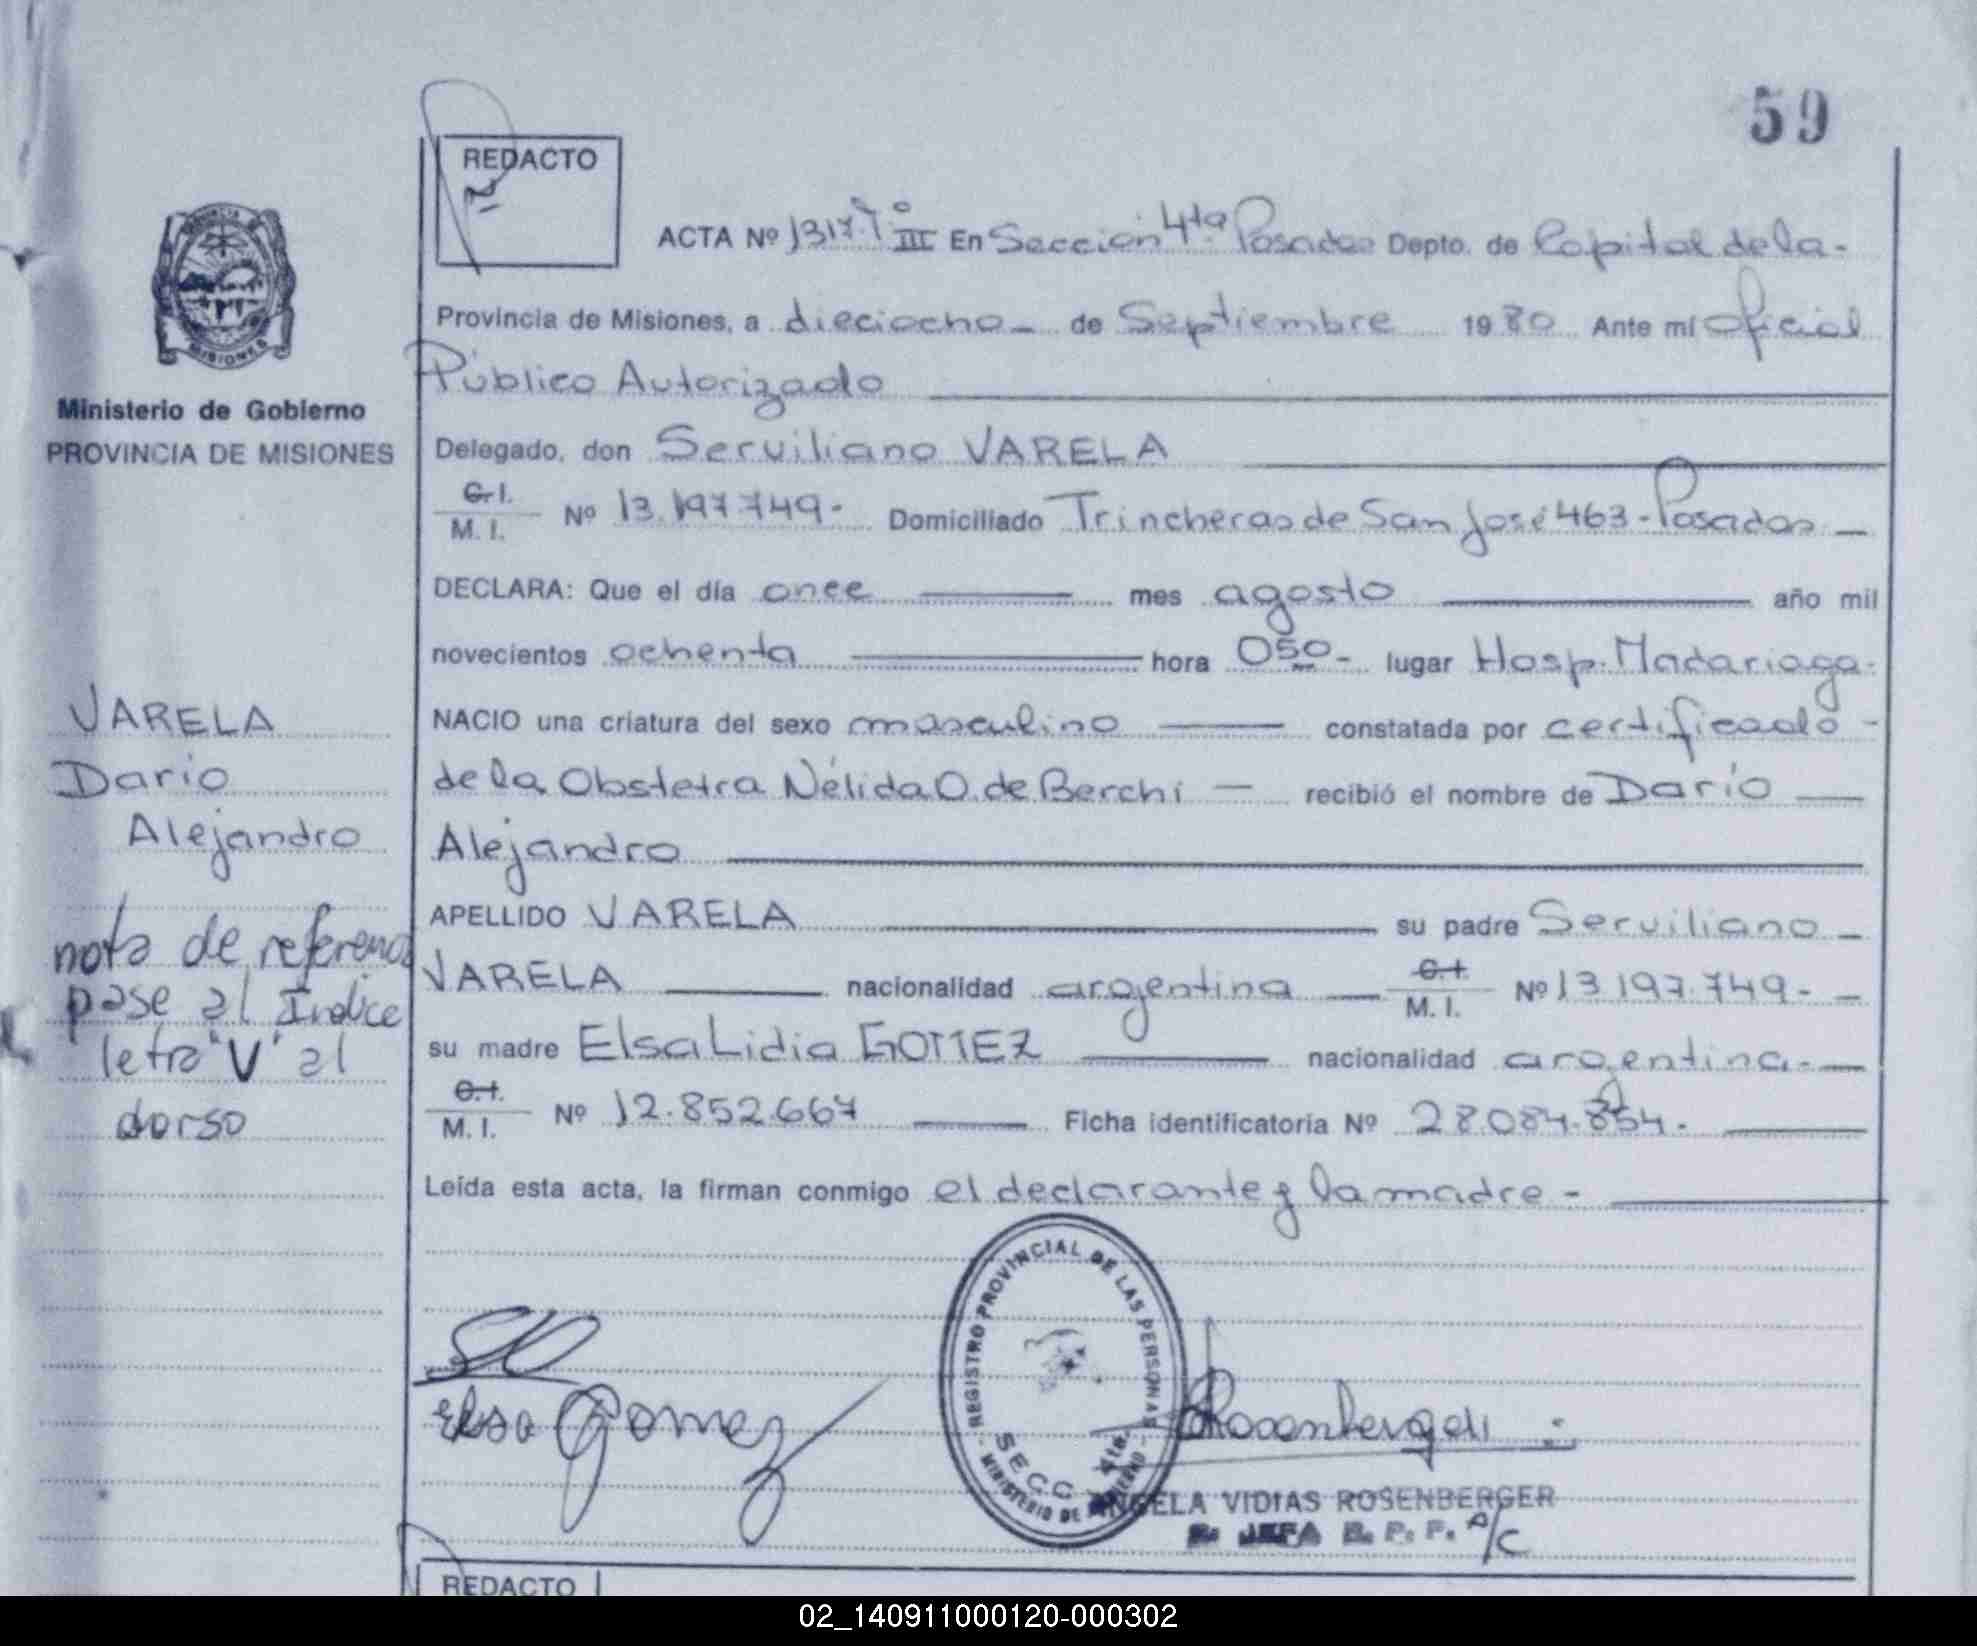 59
REDACTO
ACTA Nº 1317 Tº III En Sección 4ta. Posadas Depto. de Capital de la-
Provincia de Misiones, a dieciocho - de Septiembre 1980 Ante mí Oficial
Público Autorizado
Ministerio de Gobierno
PROVINCIA DE MISIONES
Delegado, don Serviliano VARELA
C. I. M. I. Nº 13.197.749- Domiciliado Trincheras de San José 463 - Posadas -
DECLARA: Que el día once mes agosto año mil
novecientos ochenta hora 050- lugar Hosp. Madariaga-
NACIO una criatura del sexo masculino constatada por certificado -
de la Obstetra Nélida O. de Berchi - recibió el nombre de Darío
Alejandro
APELLIDO VARELA su padre Serviliano -
VARELA nacionalidad argentina - C. I. M. I. Nº 13.197.749- -
su madre Elsa Lidia GOMEZ nacionalidad argentina.-
C. I. M. I. Nº 12.852.667 Ficha identificatoria Nº 28.084.854.
Leída esta acta, la firman conmigo el declarante y la madre -
VARELA
Darío
Alejandro
nota de referencia
pase al Indice
letra "V" al
dorso
PROVINCIA DE
MISIONES
Elsa Gomez
REGISTRO PROVINCIAL DE LAS PERSONAS
SECC. 4ta.
MINISTERIO DE GOBIERNO
ANGELA VIDIAS ROSENBERGER
JEFA R. P. P. A/C
REDACTO
02_140911000120-000302